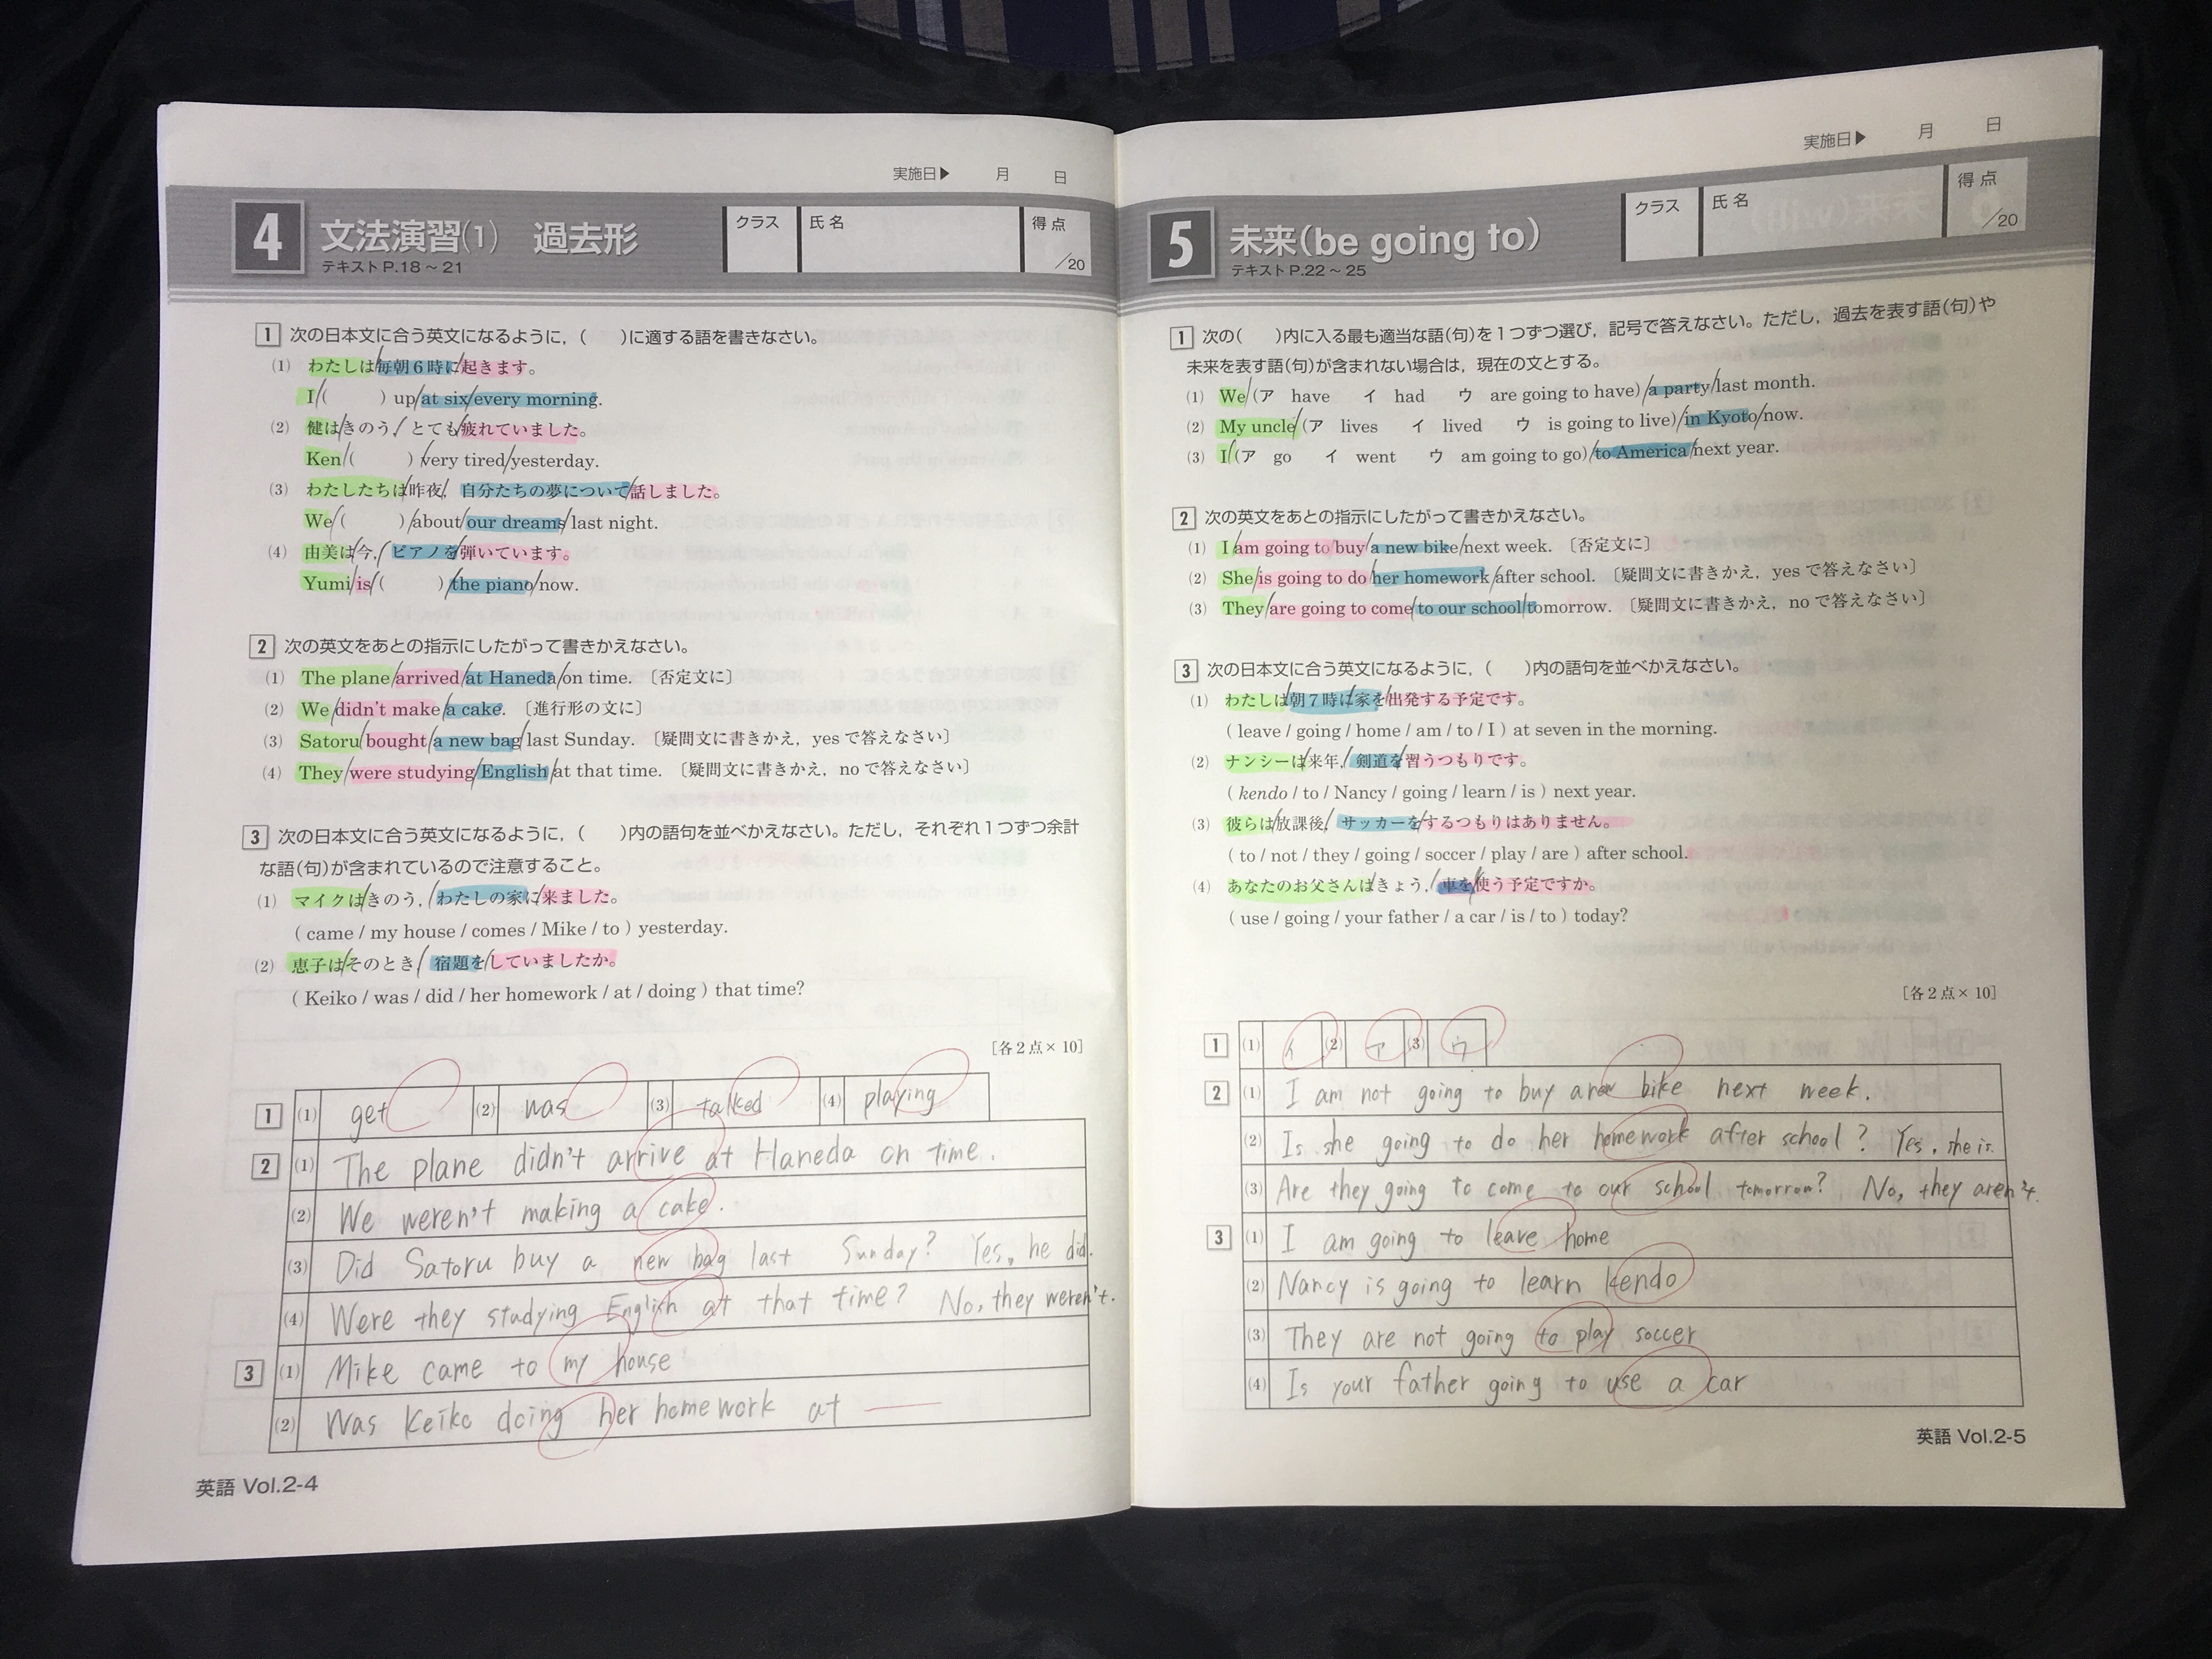 実施日▶ 月 日
4 文法演習(1) 過去形
テキストP.18～21
クラス 氏名 得点 /20
1 次の日本文に合う英文になるように，( )に適する語を書きなさい。
(1) わたしは毎朝6時に起きます。
I ( ) up at six every morning.
(2) 健はきのう，とても疲れていました。
Ken ( ) very tired yesterday.
(3) わたしたちは昨夜，自分たちの夢について話しました。
We ( ) about our dreams last night.
(4) 由美は今，ピアノを弾いています。
Yumi is ( ) the piano now.
2 次の英文をあとの指示にしたがって書きかえなさい。
(1) The plane arrived at Haneda on time. 〔否定文に〕
(2) We didn't make a cake. 〔進行形の文に〕
(3) Satoru bought a new bag last Sunday. 〔疑問文に書きかえ，yesで答えなさい〕
(4) They were studying English at that time. 〔疑問文に書きかえ，noで答えなさい〕
3 次の日本文に合う英文になるように，( )内の語句を並べかえなさい。ただし，それぞれ1つずつ余計
な語(句)が含まれているので注意すること。
(1) マイクはきのう，わたしの家に来ました。
( came / my house / comes / Mike / to ) yesterday.
(2) 恵子はそのとき，宿題をしていましたか。
( Keiko / was / did / her homework / at / doing ) that time?
［各2点×10］
1 (1) get (2) was (3) talked (4) playing
2 (1) The plane didn't arrive at Haneda on time.
(2) We weren't making a cake.
(3) Did Satoru buy a new bag last Sunday? Yes, he did.
(4) Were they studying English at that time? No, they weren't.
3 (1) Mike came to my house
(2) Was Keiko doing her homework at
英語 Vol.2-4
実施日▶ 月 日
5 未来(be going to)
テキストP.22～25
クラス 氏名 得点 /20
1 次の( )内に入る最も適当な語(句)を1つずつ選び，記号で答えなさい。ただし，過去を表す語(句)や
未来を表す語(句)が含まれない場合は，現在の文とする。
(1) We (ア have イ had ウ are going to have) a party last month.
(2) My uncle (ア lives イ lived ウ is going to live) in Kyoto now.
(3) I (ア go イ went ウ am going to go) to America next year.
2 次の英文をあとの指示にしたがって書きかえなさい。
(1) I am going to buy a new bike next week. 〔否定文に〕
(2) She is going to do her homework after school. 〔疑問文に書きかえ，yesで答えなさい〕
(3) They are going to come to our school tomorrow. 〔疑問文に書きかえ，noで答えなさい〕
3 次の日本文に合う英文になるように，( )内の語句を並べかえなさい。
(1) わたしは朝7時に家を出発する予定です。
( leave / going / home / am / to / I ) at seven in the morning.
(2) ナンシーは来年，剣道を習うつもりです。
( kendo / to / Nancy / going / learn / is ) next year.
(3) 彼らは放課後，サッカーをするつもりはありません。
( to / not / they / going / soccer / play / are ) after school.
(4) あなたのお父さんはきょう，車を使う予定ですか。
( use / going / your father / a car / is / to ) today?
［各2点×10］
1 (1) イ (2) ア (3) ウ
2 (1) I am not going to buy a new bike next week.
(2) Is she going to do her homework after school? Yes, she is.
(3) Are they going to come to our school tomorrow? No, they aren't.
3 (1) I am going to leave home
(2) Nancy is going to learn kendo
(3) They are not going to play soccer
(4) Is your father going to use a car
英語 Vol.2-5